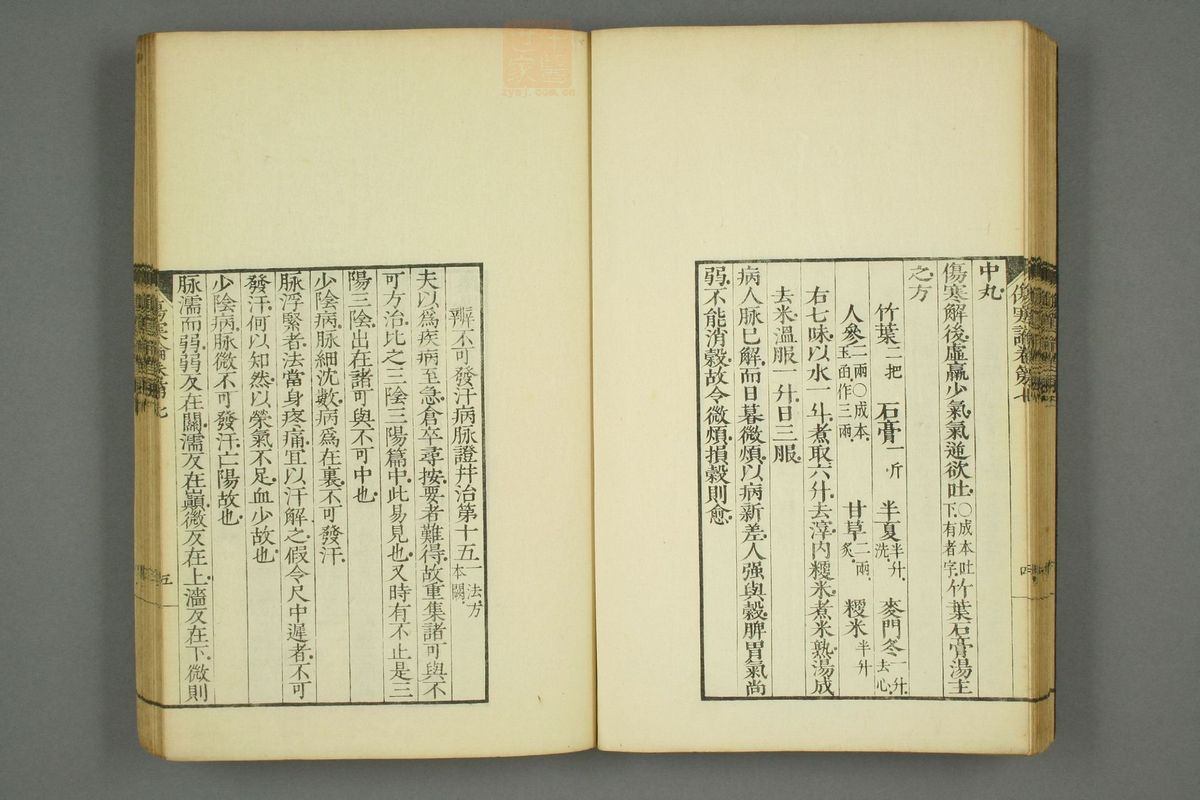 傷寒論卷第七
四
中丸
傷寒解後虛羸少氣氣逆欲吐○成本吐下有者字竹葉石膏湯主
之方
竹葉二把 石膏一斤 半夏半升洗 麥門冬一升去心
人參二兩○成本玉函作三兩 甘草二兩炙 粳米半升
右七味以水一斗煮取六升去滓內粳米煮米熟湯成
去米溫服一升日三服
病人脉已解而日暮微煩以病新差人强與穀脾胃氣尚
弱不能消穀故令微煩損穀則愈
辨不可發汗病脉證幷治第十五一法方本闕
夫以爲疾病至急倉卒尋按要者難得故重集諸可與不
可方治比之三陰三陽篇中此易見也又時有不止是三
陽三陰出在諸可與不可中也
少陰病脉細沈數病爲在裏不可發汗
脉浮緊者法當身疼痛宜以汗解之假令尺中遲者不可
發汗何以知然以榮氣不足血少故也
少陰病脉微不可發汗亡陽故也
脉濡而弱弱反在關濡反在巓微反在上濇反在下微則
五
zysj.com.cn